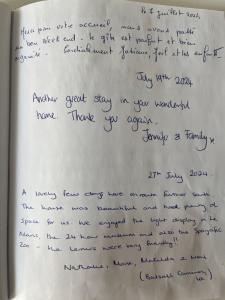 Le 8 juillet 2024
Merci pour votre accueil, nous avons passé
un bon week-end. Le gîte est parfait et bien
organisé. Cordialement
July 19th 2024
Another great stay in your wonderful
home. Thank you again.
Jennifer & Family x
27th July 2024
A lovely few days here en route further south.
The house was beautiful and had plenty of
space for us. We enjoyed the light display in Le
Mans, the 24 hour museum and also the
Zoo - the lemurs were very friendly!!
Nathalie, Matilda &